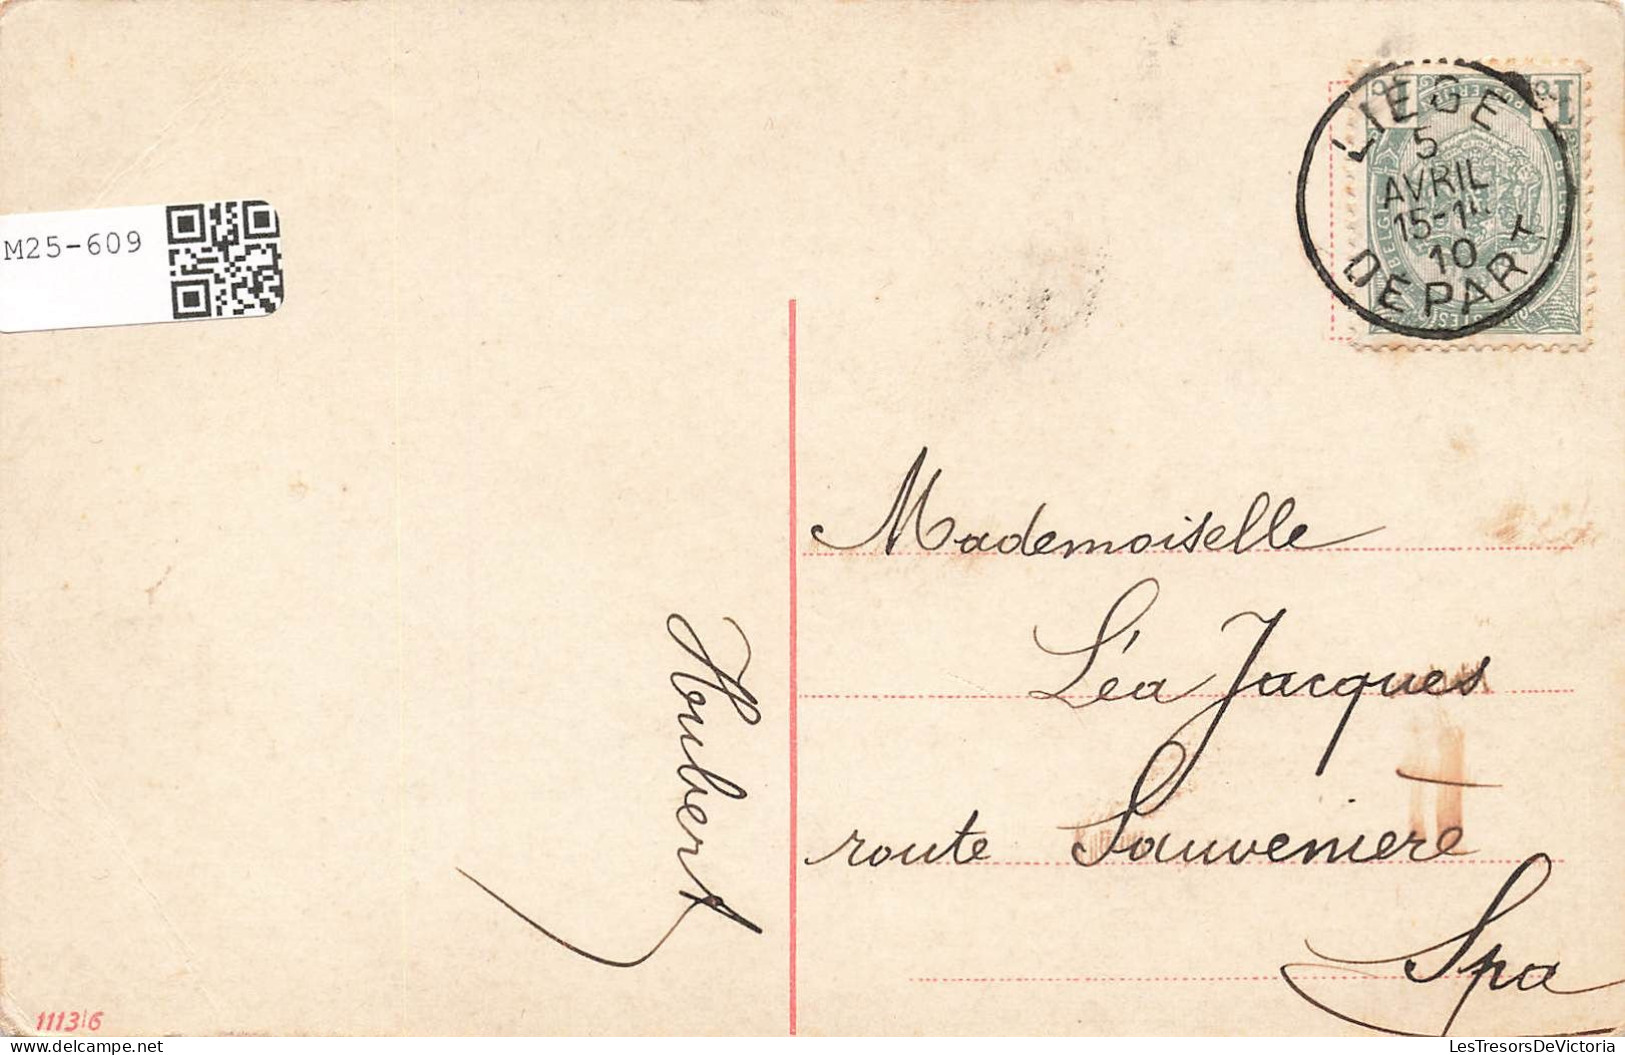 M25-609
LIEGE
5
AVRIL
15-1
10
DEPART
Mademoiselle
Léa Jacques
route Sauvenière
Spa
Houbert
1113/6
LesTresorsDeVictoria